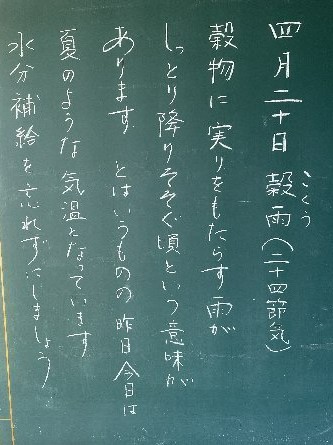 四月二十日 穀雨(二十四節気)
こくう
穀物に実りをもたらす雨が
しっとり降りそそぐ頃という意味が
あります とはいうものの昨日今日は
夏のような気温となっています
水分補給を忘れずにしましょう